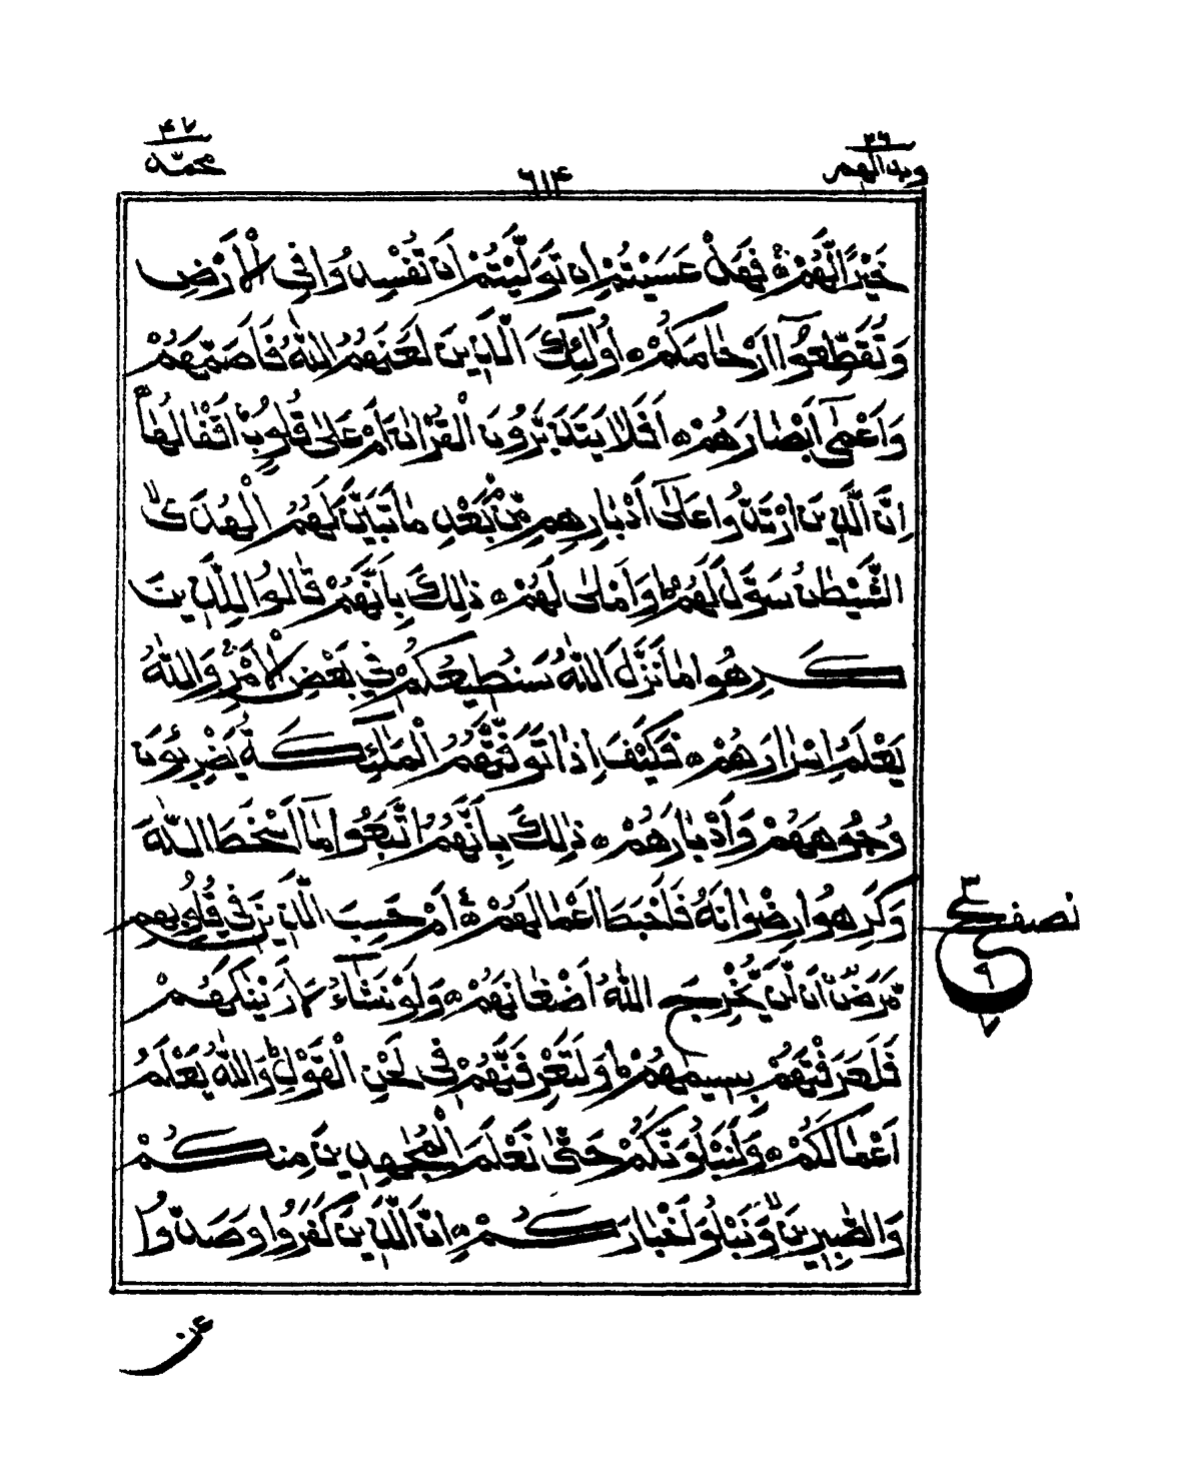 ٤٧
محمّد
٦١٤
٢٦
حم
خَيْرًا لَّهُمْ ۚ فَهَلْ عَسَيْتُمْ اِنْ تَوَلَّيْتُمْ اَنْ تُفْسِدُوْا فِى الْاَرْضِ
وَتُقَطِّعُوْٓا اَرْحَامَكُمْ ۝ اُولٰٓئِكَ الَّذِيْنَ لَعَنَهُمُ اللّٰهُ فَاَصَمَّهُمْ
وَاَعْمٰٓى اَبْصَارَهُمْ ۝ اَفَلَا يَتَدَبَّرُوْنَ الْقُرْاٰنَ اَمْ عَلٰى قُلُوْبٍ اَقْفَالُهَا
اِنَّ الَّذِيْنَ ارْتَدُّوْا عَلٰٓى اَدْبَارِهِمْ مِّنْۢ بَعْدِ مَا تَبَيَّنَ لَهُمُ الْهُدَى ۙ
الشَّيْطٰنُ سَوَّلَ لَهُمْ ؕ وَاَمْلٰى لَهُمْ ۝ ذٰلِكَ بِاَنَّهُمْ قَالُوْا لِلَّذِيْنَ
كَرِهُوْا مَا نَزَّلَ اللّٰهُ سَنُطِيْعُكُمْ فِيْ بَعْضِ الْاَمْرِ ۚ وَاللّٰهُ
يَعْلَمُ اِسْرَارَهُمْ ۝ فَكَيْفَ اِذَا تَوَفَّتْهُمُ الْمَلٰٓئِكَةُ يَضْرِبُوْنَ
وُجُوْهَهُمْ وَاَدْبَارَهُمْ ۝ ذٰلِكَ بِاَنَّهُمُ اتَّبَعُوْا مَآ اَسْخَطَ اللّٰهَ
وَكَرِهُوْا رِضْوَانَهٗ فَاَحْبَطَ اَعْمَالَهُمْ ۝ اَمْ حَسِبَ الَّذِيْنَ فِيْ قُلُوْبِهِمْ
نصف ع ٣ ٩ ٧
مَّرَضٌ اَنْ لَّنْ يُّخْرِجَ اللّٰهُ اَضْغَانَهُمْ ۝ وَلَوْ نَشَآءُ لَاَرَيْنٰكَهُمْ
فَلَعَرَفْتَهُمْ بِسِيْمٰهُمْ ؕ وَلَتَعْرِفَنَّهُمْ فِيْ لَحْنِ الْقَوْلِ ؕ وَاللّٰهُ يَعْلَمُ
اَعْمَالَكُمْ ۝ وَلَنَبْلُوَنَّكُمْ حَتّٰى نَعْلَمَ الْمُجٰهِدِيْنَ مِنْكُمْ
وَالصّٰبِرِيْنَ ۙ وَنَبْلُوَا۟ اَخْبَارَكُمْ ۝ اِنَّ الَّذِيْنَ كَفَرُوْا وَصَدُّوْا
عن